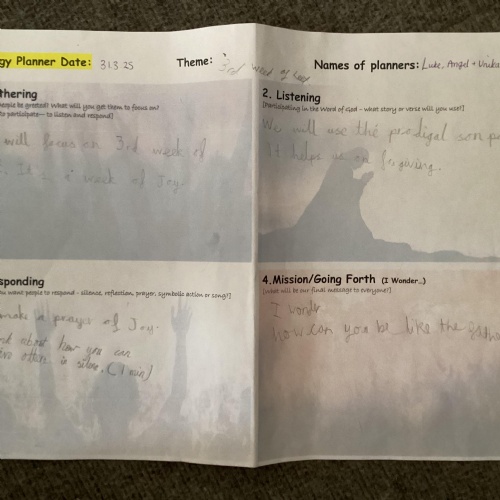 gy Planner Date: 31.3.25 Theme: 3rd week of God Names of planners: Luke, Angel +
thering
people be greeted? What will you get them to focus on?
to participate— to listen and respond]
will focus on 3rd week of
. It is a week of Joy.
2. Listening
[Participating in the Word of God – what story or verse will you use?]
We will use the prodigal son
It helps us on forgiving.
sponding
ou want people to respond - silence, reflection, prayer, symbolic action or song?]
make a prayer of Joy.
about how you can
others in silence. (1 min)
4.Mission/Going Forth (I Wonder...)
[What will be our final message to everyone?]
I wonder
how can you be like the